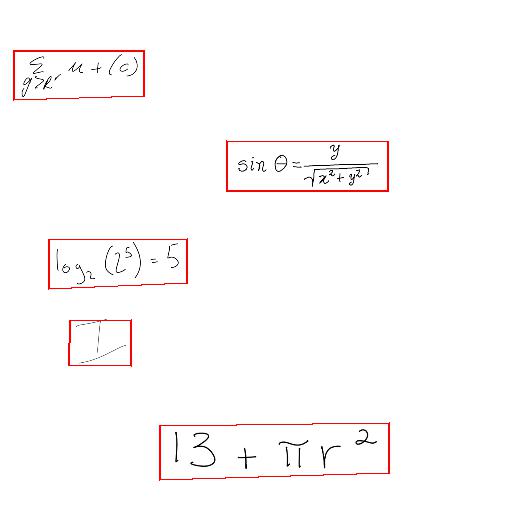 ∑_{g>R'} u + (c)
sin θ = y / √(x² + y²)
log₂ (2⁵) = 5
I
13 + π r²